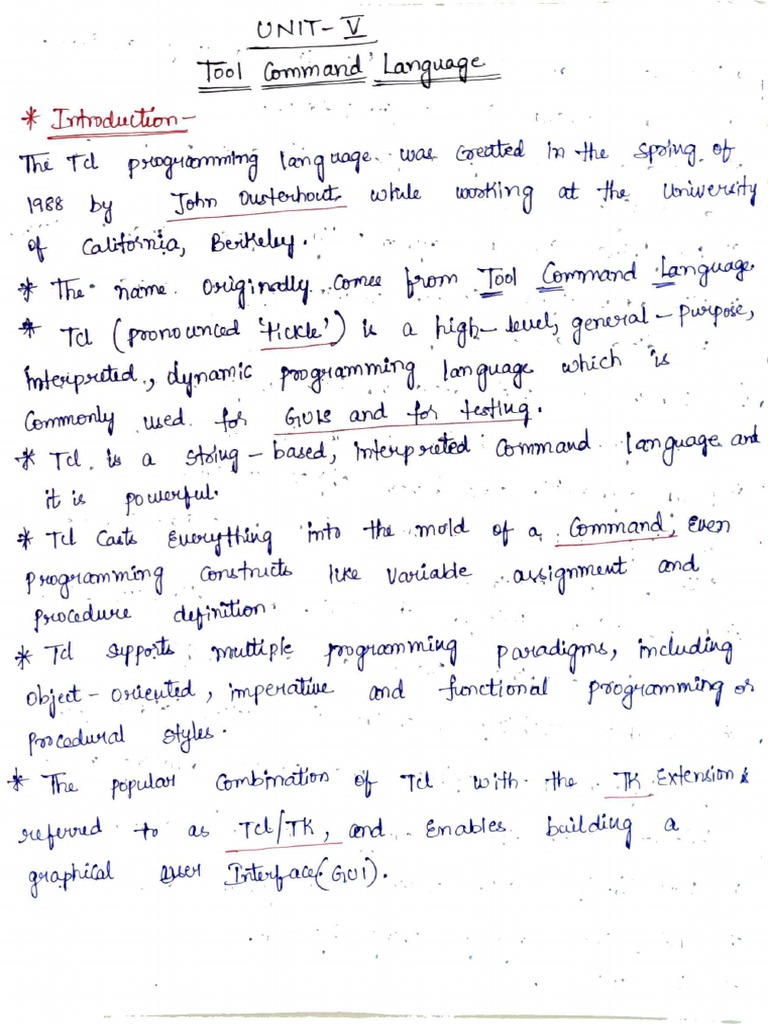 UNIT-V
Tool Command Language
* Introduction-
The Tcl programming language was created in the spring of
1988 by John Ousterhout while working at the University
of California, Berkeley.
* The name originally comes from Tool Command Language
* Tcl (pronounced 'tickle') is a high-level, general-purpose,
interpreted, dynamic programming language which is
commonly used for GUIs and for testing.
* Tcl is a string-based, interpreted command language and
it is powerful.
* Tcl casts everything into the mold of a command, even
programming constructs like variable assignment and
procedure definition.
* Tcl supports multiple programming paradigms, including
object-oriented, imperative and functional programming or
procedural styles.
* The popular combination of Tcl with the TK Extension is
referred to as Tcl/TK, and enables building a
graphical user Interface (GUI).